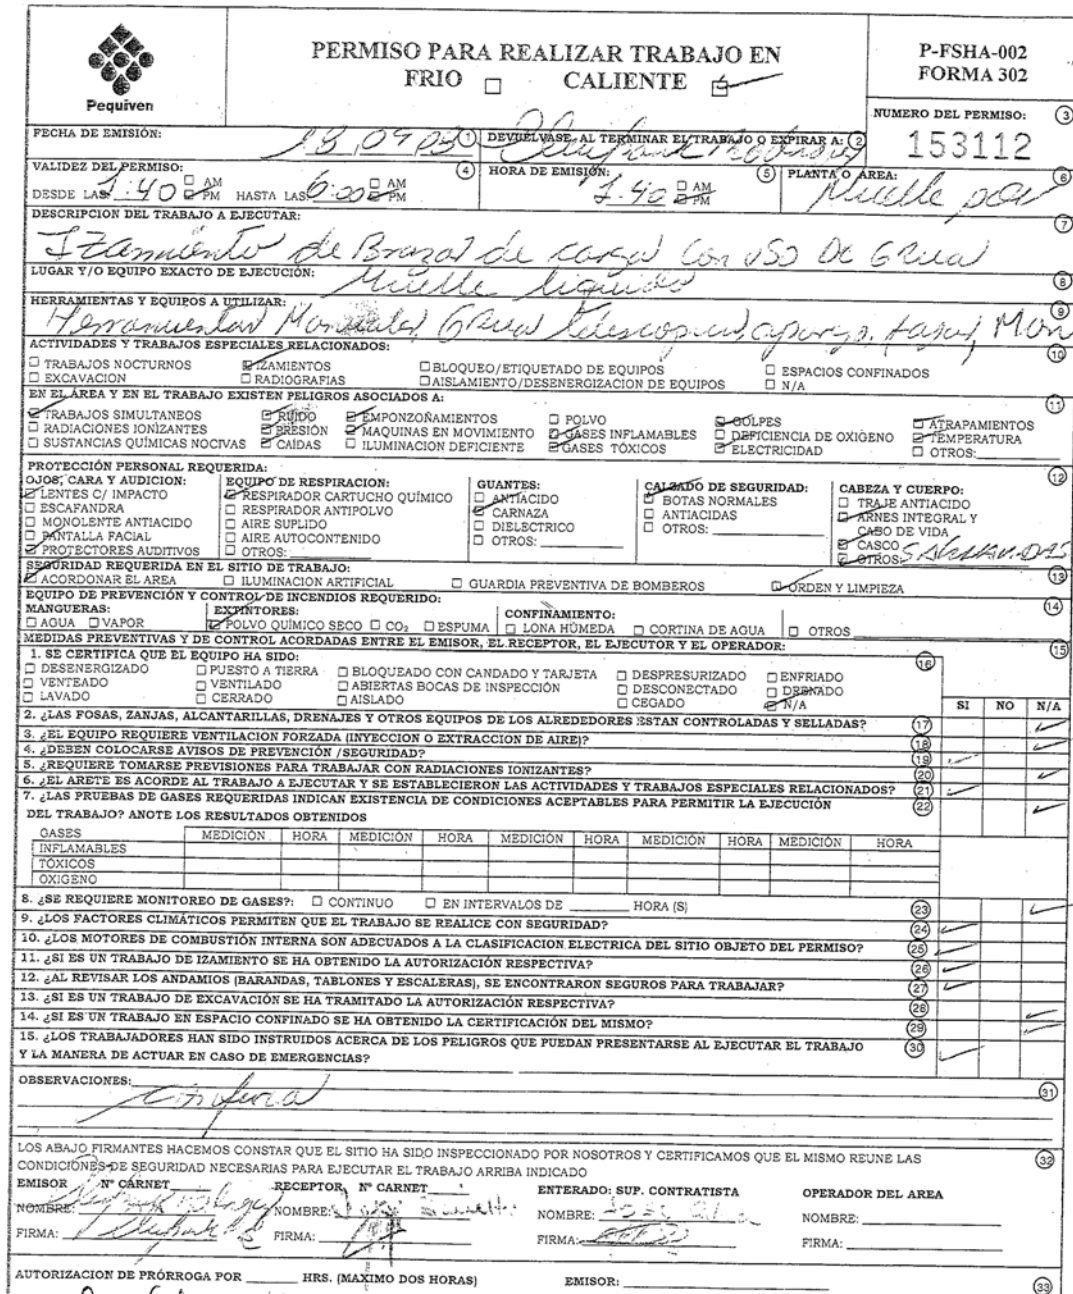 Pequiven
PERMISO PARA REALIZAR TRABAJO EN
FRIO ☐ CALIENTE ☑
P-FSHA-002
FORMA 302
NUMERO DEL PERMISO: 3
153112
FECHA DE EMISIÓN: 1
DEVUÉLVASE AL TERMINAR EL TRABAJO O EXPIRAR A: 2
VALIDEZ DEL PERMISO: 4
DESDE LAS 1:40 ☐ AM ☑ PM HASTA LAS 6:00 ☐ AM ☑ PM
HORA DE EMISIÓN: 5
1:40 ☐ AM ☑ PM
PLANTA O ÁREA: 6
Muelle
DESCRIPCION DEL TRABAJO A EJECUTAR: 7
Izamiento de Brazos de carga Con uSO De GRua
LUGAR Y/O EQUIPO EXACTO DE EJECUCIÓN: 8
Muelle liquido
HERRAMIENTAS Y EQUIPOS A UTILIZAR: 9
Herramientas Manuales, GRua telescopica,
ACTIVIDADES Y TRABAJOS ESPECIALES RELACIONADOS: 10
☐ TRABAJOS NOCTURNOS ☑ IZAMIENTOS ☐ BLOQUEO/ETIQUETADO DE EQUIPOS ☐ ESPACIOS CONFINADOS
☐ EXCAVACION ☐ RADIOGRAFIAS ☐ AISLAMIENTO/DESENERGIZACION DE EQUIPOS ☐ N/A
EN EL ÁREA Y EN EL TRABAJO EXISTEN PELIGROS ASOCIADOS A: 11
☑ TRABAJOS SIMULTANEOS ☑ RUIDO ☑ EMPONZOÑAMIENTOS ☐ POLVO ☑ GOLPES ☑ ATRAPAMIENTOS
☐ RADIACIONES IONIZANTES ☑ PRESIÓN ☑ MAQUINAS EN MOVIMIENTO ☑ GASES INFLAMABLES ☐ DEFICIENCIA DE OXIGENO ☑ TEMPERATURA
☐ SUSTANCIAS QUÍMICAS NOCIVAS ☑ CAÍDAS ☐ ILUMINACION DEFICIENTE ☑ GASES TÓXICOS ☑ ELECTRICIDAD ☐ OTROS:
PROTECCIÓN PERSONAL REQUERIDA: 12
OJOS, CARA Y AUDICION: EQUIPO DE RESPIRACION: GUANTES: CALZADO DE SEGURIDAD: CABEZA Y CUERPO:
☑ LENTES C/ IMPACTO ☑ RESPIRADOR CARTUCHO QUÍMICO ☐ ANTIACIDO ☑ BOTAS NORMALES ☐ TRAJE ANTIACIDO
☐ ESCAFANDRA ☐ RESPIRADOR ANTIPOLVO ☑ CARNAZA ☐ ANTIACIDAS ☑ ARNES INTEGRAL Y
☐ MONOLENTE ANTIACIDO ☐ AIRE SUPLIDO ☐ DIELECTRICO ☐ OTROS: CABO DE VIDA
☐ PANTALLA FACIAL ☐ AIRE AUTOCONTENIDO ☐ OTROS: ☑ CASCO
☑ PROTECTORES AUDITIVOS ☐ OTROS: ☑ OTROS: SALVAVIDAS
SEGURIDAD REQUERIDA EN EL SITIO DE TRABAJO: 13
☑ ACORDONAR EL AREA ☐ ILUMINACION ARTIFICIAL ☐ GUARDIA PREVENTIVA DE BOMBEROS ☑ ORDEN Y LIMPIEZA
EQUIPO DE PREVENCIÓN Y CONTROL DE INCENDIOS REQUERIDO: 14
MANGUERAS: EXTINTORES: CONFINAMIENTO:
☐ AGUA ☐ VAPOR ☑ POLVO QUÍMICO SECO ☐ CO₂ ☐ ESPUMA ☐ LONA HÚMEDA ☐ CORTINA DE AGUA ☐ OTROS
MEDIDAS PREVENTIVAS Y DE CONTROL ACORDADAS ENTRE EL EMISOR, EL RECEPTOR, EL EJECUTOR Y EL OPERADOR: 15
1. SE CERTIFICA QUE EL EQUIPO HA SIDO: 16
☐ DESENERGIZADO ☐ PUESTO A TIERRA ☐ BLOQUEADO CON CANDADO Y TARJETA ☐ DESPRESURIZADO ☐ ENFRIADO
☐ VENTEADO ☐ VENTILADO ☐ ABIERTAS BOCAS DE INSPECCIÓN ☐ DESCONECTADO ☐ DRENADO
☐ LAVADO ☐ CERRADO ☐ AISLADO ☐ CEGADO ☑ N/A
SI NO N/A
2. ¿LAS FOSAS, ZANJAS, ALCANTARILLAS, DRENAJES Y OTROS EQUIPOS DE LOS ALREDEDORES ESTAN CONTROLADAS Y SELLADAS? 17
3. ¿EL EQUIPO REQUIERE VENTILACION FORZADA (INYECCION O EXTRACCION DE AIRE)? 18
4. ¿DEBEN COLOCARSE AVISOS DE PREVENCIÓN /SEGURIDAD? 19
5. ¿REQUIERE TOMARSE PREVISIONES PARA TRABAJAR CON RADIACIONES IONIZANTES? 20
6. ¿EL ARETE ES ACORDE AL TRABAJO A EJECUTAR Y SE ESTABLECIERON LAS ACTIVIDADES Y TRABAJOS ESPECIALES RELACIONADOS? 21
7. ¿LAS PRUEBAS DE GASES REQUERIDAS INDICAN EXISTENCIA DE CONDICIONES ACEPTABLES PARA PERMITIR LA EJECUCIÓN 22
DEL TRABAJO? ANOTE LOS RESULTADOS OBTENIDOS
GASES MEDICIÓN HORA MEDICIÓN HORA MEDICIÓN HORA MEDICIÓN HORA MEDICIÓN HORA
INFLAMABLES
TÓXICOS
OXIGENO
8. ¿SE REQUIERE MONITOREO DE GASES?: ☐ CONTINUO ☐ EN INTERVALOS DE ______ HORA (S) 23
9. ¿LOS FACTORES CLIMÁTICOS PERMITEN QUE EL TRABAJO SE REALICE CON SEGURIDAD? 24
10. ¿LOS MOTORES DE COMBUSTIÓN INTERNA SON ADECUADOS A LA CLASIFICACION ELECTRICA DEL SITIO OBJETO DEL PERMISO? 25
11. ¿SI ES UN TRABAJO DE IZAMIENTO SE HA OBTENIDO LA AUTORIZACIÓN RESPECTIVA? 26
12. ¿AL REVISAR LOS ANDAMIOS (BARANDAS, TABLONES Y ESCALERAS), SE ENCONTRARON SEGUROS PARA TRABAJAR? 27
13. ¿SI ES UN TRABAJO DE EXCAVACIÓN SE HA TRAMITADO LA AUTORIZACIÓN RESPECTIVA? 28
14. ¿SI ES UN TRABAJO EN ESPACIO CONFINADO SE HA OBTENIDO LA CERTIFICACIÓN DEL MISMO? 29
15. ¿LOS TRABAJADORES HAN SIDO INSTRUIDOS ACERCA DE LOS PELIGROS QUE PUEDAN PRESENTARSE AL EJECUTAR EL TRABAJO 30
Y LA MANERA DE ACTUAR EN CASO DE EMERGENCIAS?
OBSERVACIONES: 31
LOS ABAJO FIRMANTES HACEMOS CONSTAR QUE EL SITIO HA SIDO INSPECCIONADO POR NOSOTROS Y CERTIFICAMOS QUE EL MISMO REUNE LAS 32
CONDICIONES DE SEGURIDAD NECESARIAS PARA EJECUTAR EL TRABAJO ARRIBA INDICADO
EMISOR Nº CÁRNET RECEPTOR Nº CARNET ENTERADO: SUP. CONTRATISTA OPERADOR DEL AREA
NOMBRE: NOMBRE: NOMBRE: NOMBRE:
FIRMA: FIRMA: FIRMA: FIRMA:
AUTORIZACION DE PRÓRROGA POR ______ HRS. (MAXIMO DOS HORAS) EMISOR: 33